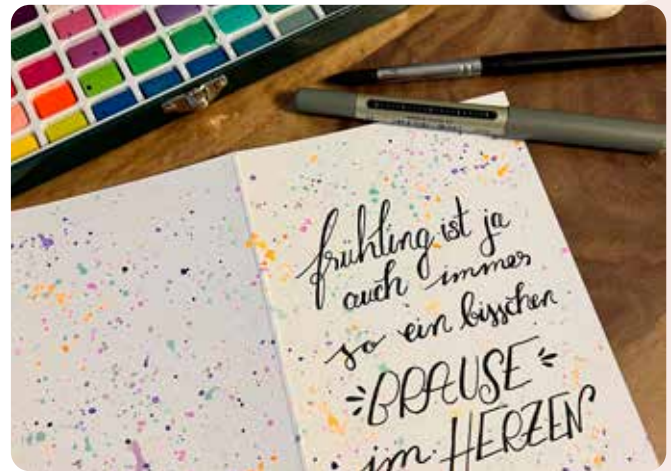 frühling ist ja
auch immer
so ein bisschen
BRAUSE
im HERZEN